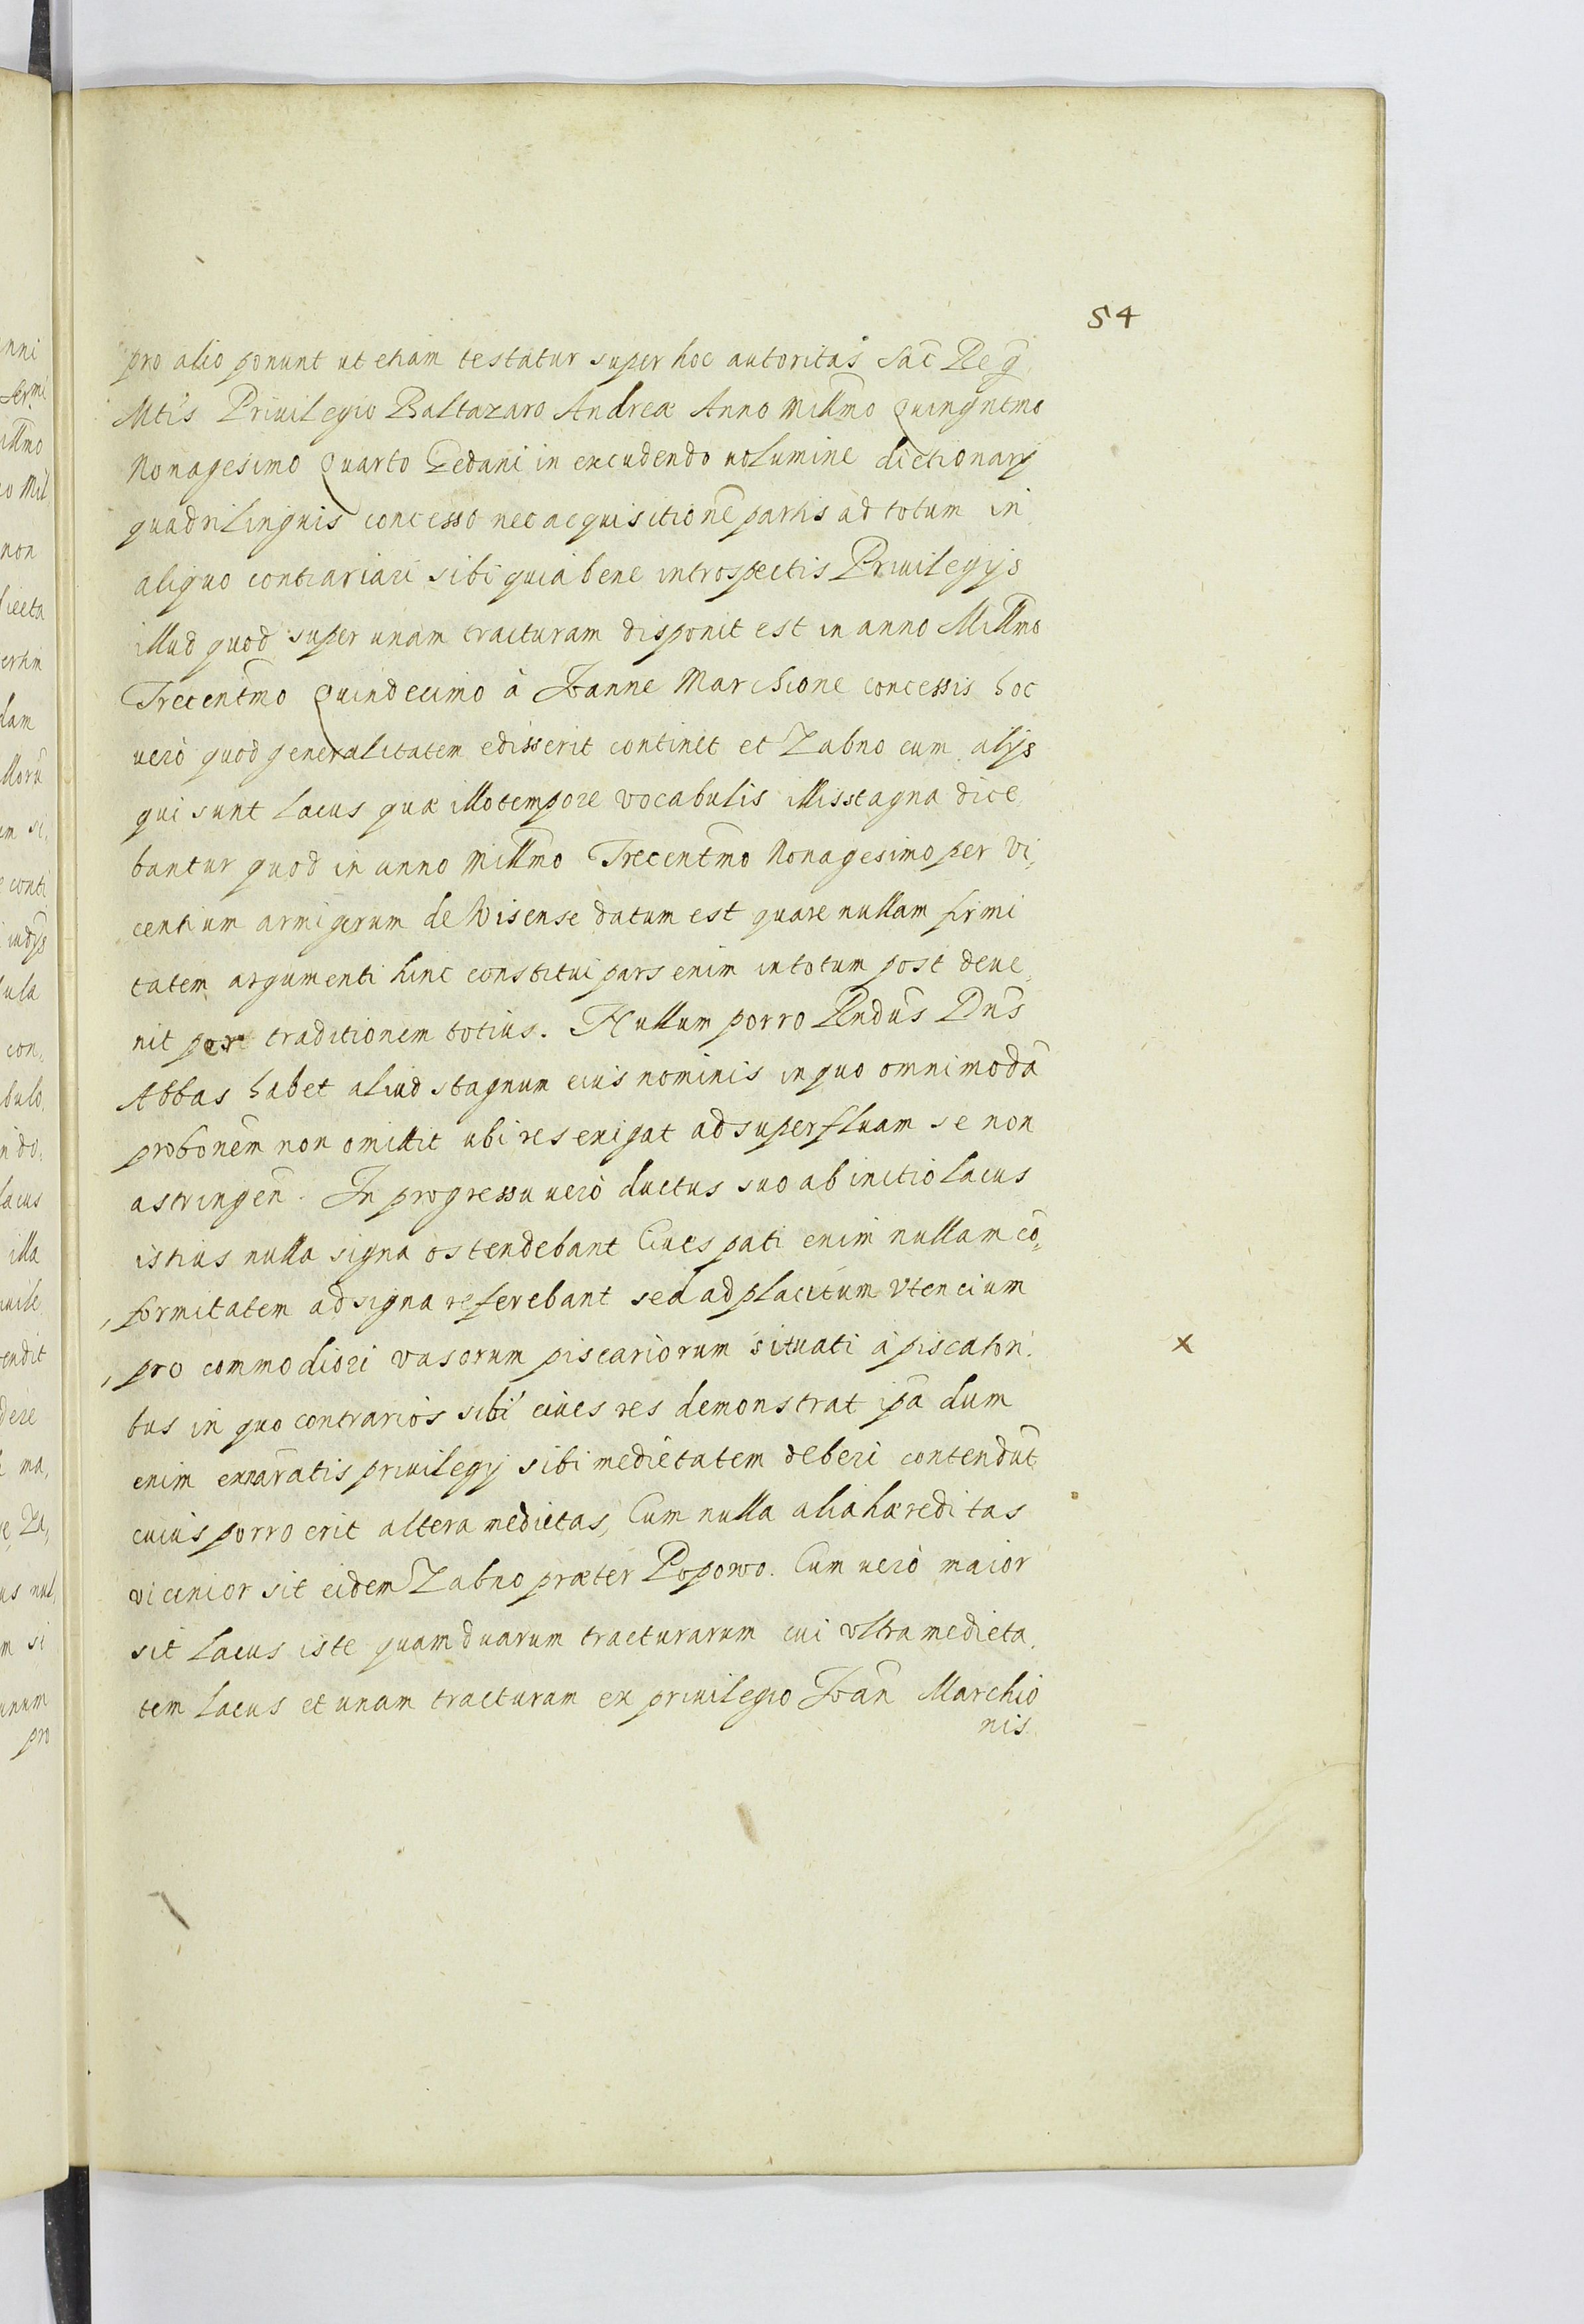 54
pro alio ponunt ut etiam testatur super hoc autoritas Sac Reg
Mtis Priuilegio Baltazaro Andreæ Anno Millmo Quingntmo
Nonagesimo Quarto Gedani in excudendo uolumine dictionarij
quadrilinguis concesso nec acquisitione partis ad totum in
aliquo contrariari sibi quia bene introspectis Priuilegijs
illud quod super unam tracturam disponit est in anno Millmo
Trecentmo Quindecimo à Joanne Marchione concessis hoc
uerò quod generalitatem edisserit continet et Zabno cum alijs
qui sunt Lacus quæ illo tempore vocabulis illis stagna dice,
bantur quod in anno Millmo Trecentmo Nonagesimo per Vi,
centium armigerum de Wisense datum est quare nullam firmi
tatem argumenti hinc constitui pars enim in totum post deue,
nit per traditionem totius. Nullum porro Rndus Dns
Abbas habet aliud stagnum eius nominis in quo omnimoda
probonem non omittit ubi res exigat ad superfluam se non
astringen. In progressu uerò ductus suo ab initio Lacus
istius nulla signa ostendebant Ciues pati enim nullam co,
formitatem ad signa referebant sed ad placitum Vtencium
pro commodiori vasorum piscariorum situati à piscatori
bus in quo contrarios sibi ciues res demonstrat ipa dum
enim exaratis priuilegij sibi medietatem deberi contendut
cuius porro erit altera medietas, Cum nulla alia hæreditas
vicinior sit eidem Zabno præter Popowo. Cum uerò maior
sit Lacus iste quam duarum tracturarum cui vltra medieta,
tem Lacus et unam tracturam ex priuilegio Joan Marchio
nis
x